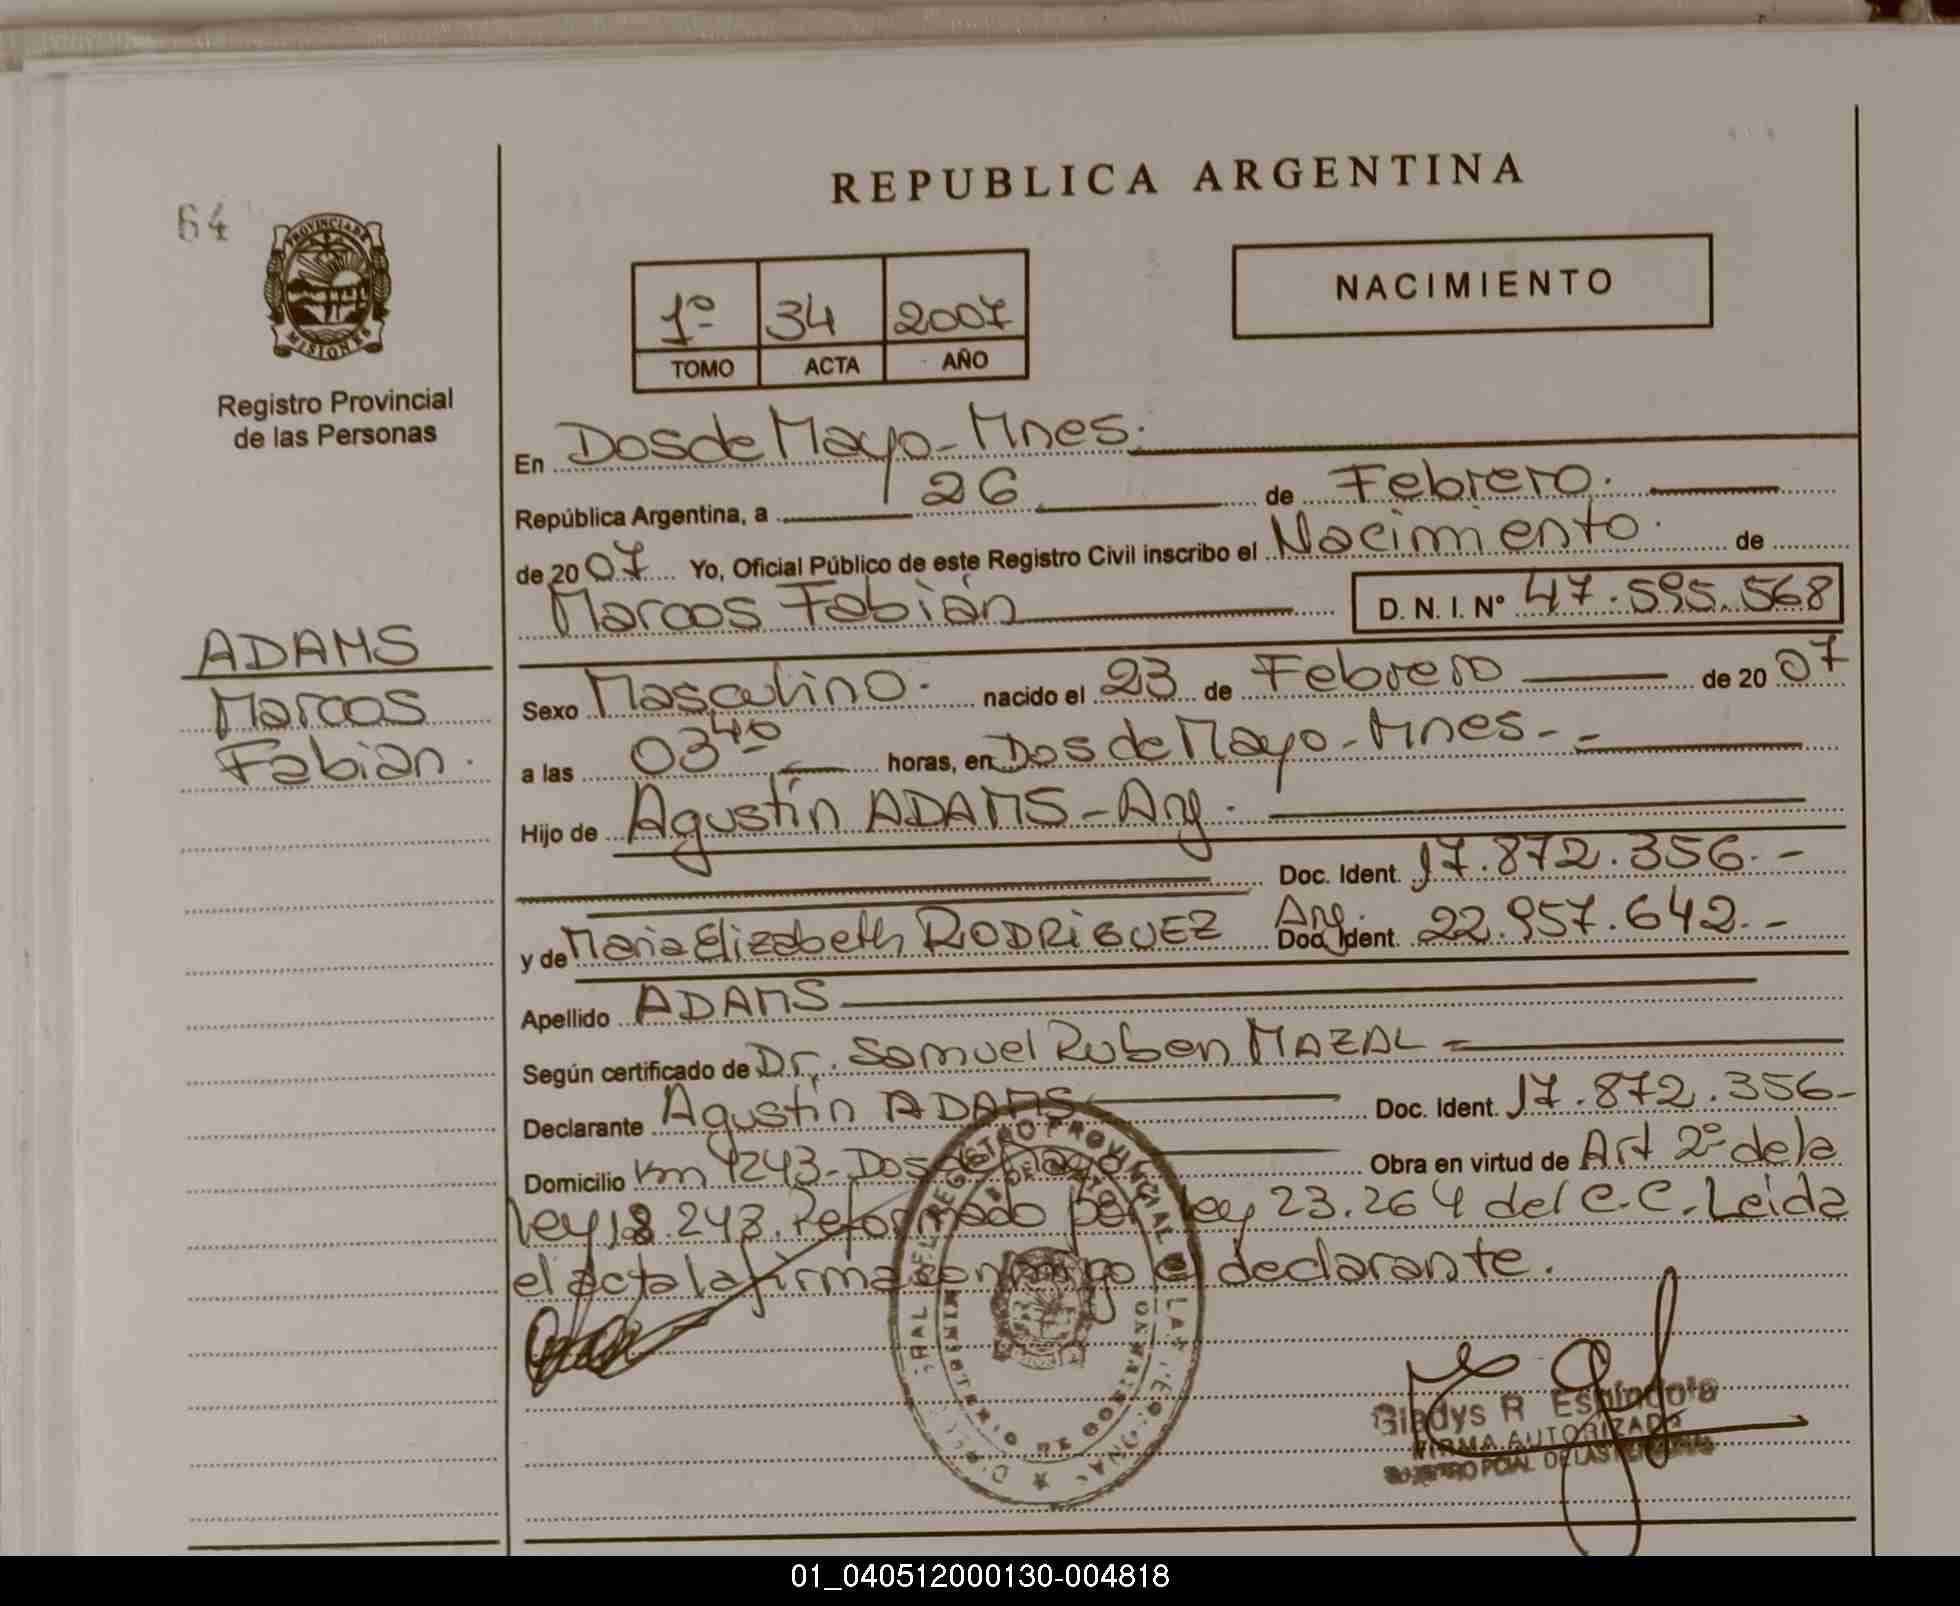 64
PROVINCIA DE
MISIONES
Registro Provincial
de las Personas
ADAMS
Marcos
Fabián.
REPUBLICA ARGENTINA
1º 34 2007
TOMO ACTA AÑO
NACIMIENTO
En Dos de Mayo - Mnes.
República Argentina, a 26 de Febrero.
de 2007 Yo, Oficial Público de este Registro Civil inscribo el Nacimiento. de
Marcos Fabián D. N. I. Nº 47.595.568
Sexo Masculino. nacido el 23 de Febrero de 2007
a las 03 40 horas, en Dos de Mayo - Mnes - -
Hijo de Agustín ADAMS - Arg.
Doc. Ident. 17.872.356. -
y de Maria Elizabeth RODRiGUEZ Arg. Doc. Ident. 22.957.642. -
Apellido ADAMS
Según certificado de Dr. Samuel Ruben MAZAL
Declarante Agustín ADAMS Doc. Ident. 17.872.356-
Domicilio Km 1243 - Dos de Mayo Obra en virtud de Art 2º de la
Ley 18.248. Reformado por Ley 23.264 del C.C. Leida
el acta la firma conmigo el declarante.
REGISTRO PROVINCIAL DE LAS
MINISTERIO DE GOBIERNO
Gladys R Espíndola
FIRMA AUTORIZADA
REGISTRO PCIAL DE LAS PERSONAS
01_040512000130-004818